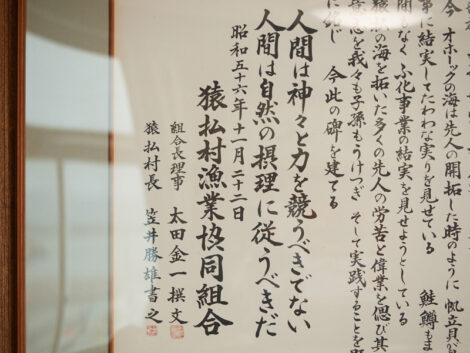 今 オホーツクの海は先人の開拓した時のように 帆立貝が
事に結実してたわわな実りを見せている 鮭鱒もま
間もなく ふ化事業の結実を見せようとしている
猿払の海を拓いた多くの先人の労苦と偉業を偲び其
を我々も子孫もうけつぎ そして実践することを
今此の碑を建てる
人間は神々と力を競うべきでない
人間は自然の摂理に従うべきだ
昭和五十六年十一月二十二日
猿払村漁業協同組合
組合長理事 太田金一 撰文
猿払村長 笠井勝雄書之